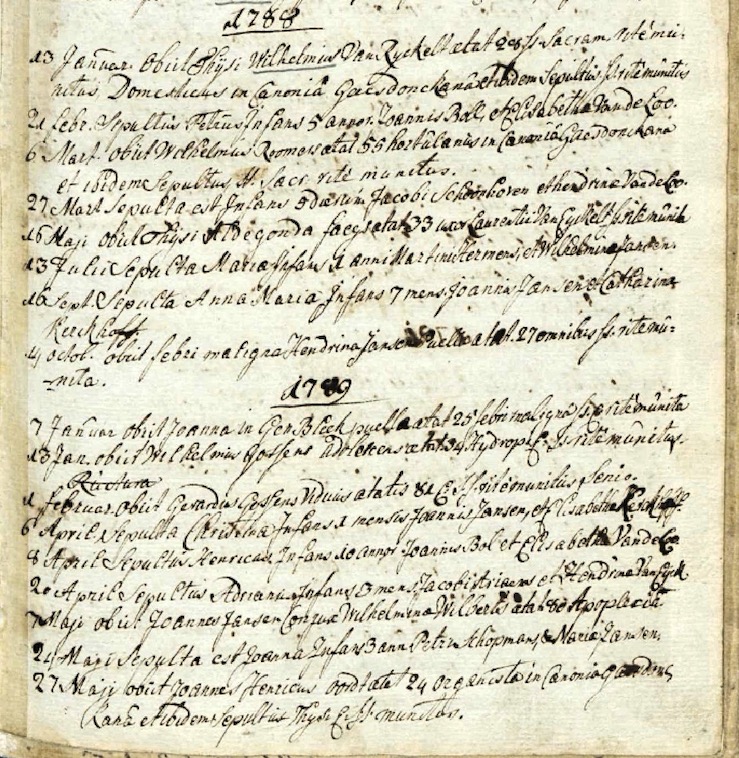 1788
13 Januar. obiit Thysi Wilhelmus Van Eyckelt ætat 28 ss. Sacram. rite mu-
nitus Domesticus in Canonia Gaesdonckana et ibidem Sepultus ss. rite munitus
21 febr. Sepultus Petrus Infans 5 annor. Joannis Bol, et Elisabetha Van de Loo.
6 Mart. obiit Wilhelmus Roomers ætat 55 hortulanus in Canonia Gaesdonckana
et ibidem Sepultus ss. Sacr. rite munitus.
27 Mart Sepulta est Infans dierum Jacobi Schoenhoven et hendrinæ Van de Loo.
16 Maji obiit Thysi Aldegonda faegs ætat 33 uxor Laurentii Van Eyckelt ss. rite munita
13 Julii Sepulta Maria Infans 1 anni Martini termens, et Wilhelmina Jansen.
16 Sept. Sepulta Anna Maria Infans 7 mens. Joannis Jansen et Catharina
Kerckhoff.
14 octob. obiit febri maligna Hendrina Jansen Puella ætat. 27 omnibus ss. rite mu-
nita.
1789
7 Januar obiit Joanna in Gen Bleek puella ætat 25 febri maligna ss. rite munita
13 Jan. obiit Wilhelmus Gossens adolescens ætat 34 Hydrope E. ss. rite munitus.
Ructura
1 februar. obiit Gerardus Gossens Viduus ætatis 81 E. ss. rite munitus Senio.
6 April Sepulta Christina Infans 1 mensis Joannis Jansen, et Elisabetha Kerckhoff.
8 April Sepultus Henricus Infans 10 annor Joannis Bol et Elisabetha Van de Loo
20 April Sepultus Adrianus Infans 3 mens. Jacobi Ariaens et Hendrina Van Eyck
7 Maji obiit Joannes Jansen Conjux Wilhelminæ Wilberts ætat 80 Apoplexia
24 Maji Sepulta est Joanna Infans 3 ann Petri Schopmans, & Maria Jansen.
27 Maji obiit Joannes Henricus oordt ætat 24 organista in Canonia Gaesdonc
kana et ibidem Sepultus Thysi E. ss munitus.